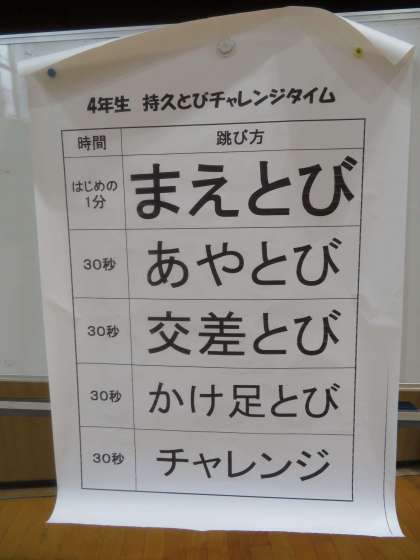 4年生 持久とびチャレンジタイム
時間 跳び方
はじめの
1分 まえとび
30秒 あやとび
30秒 交差とび
30秒 かけ足とび
30秒 チャレンジ